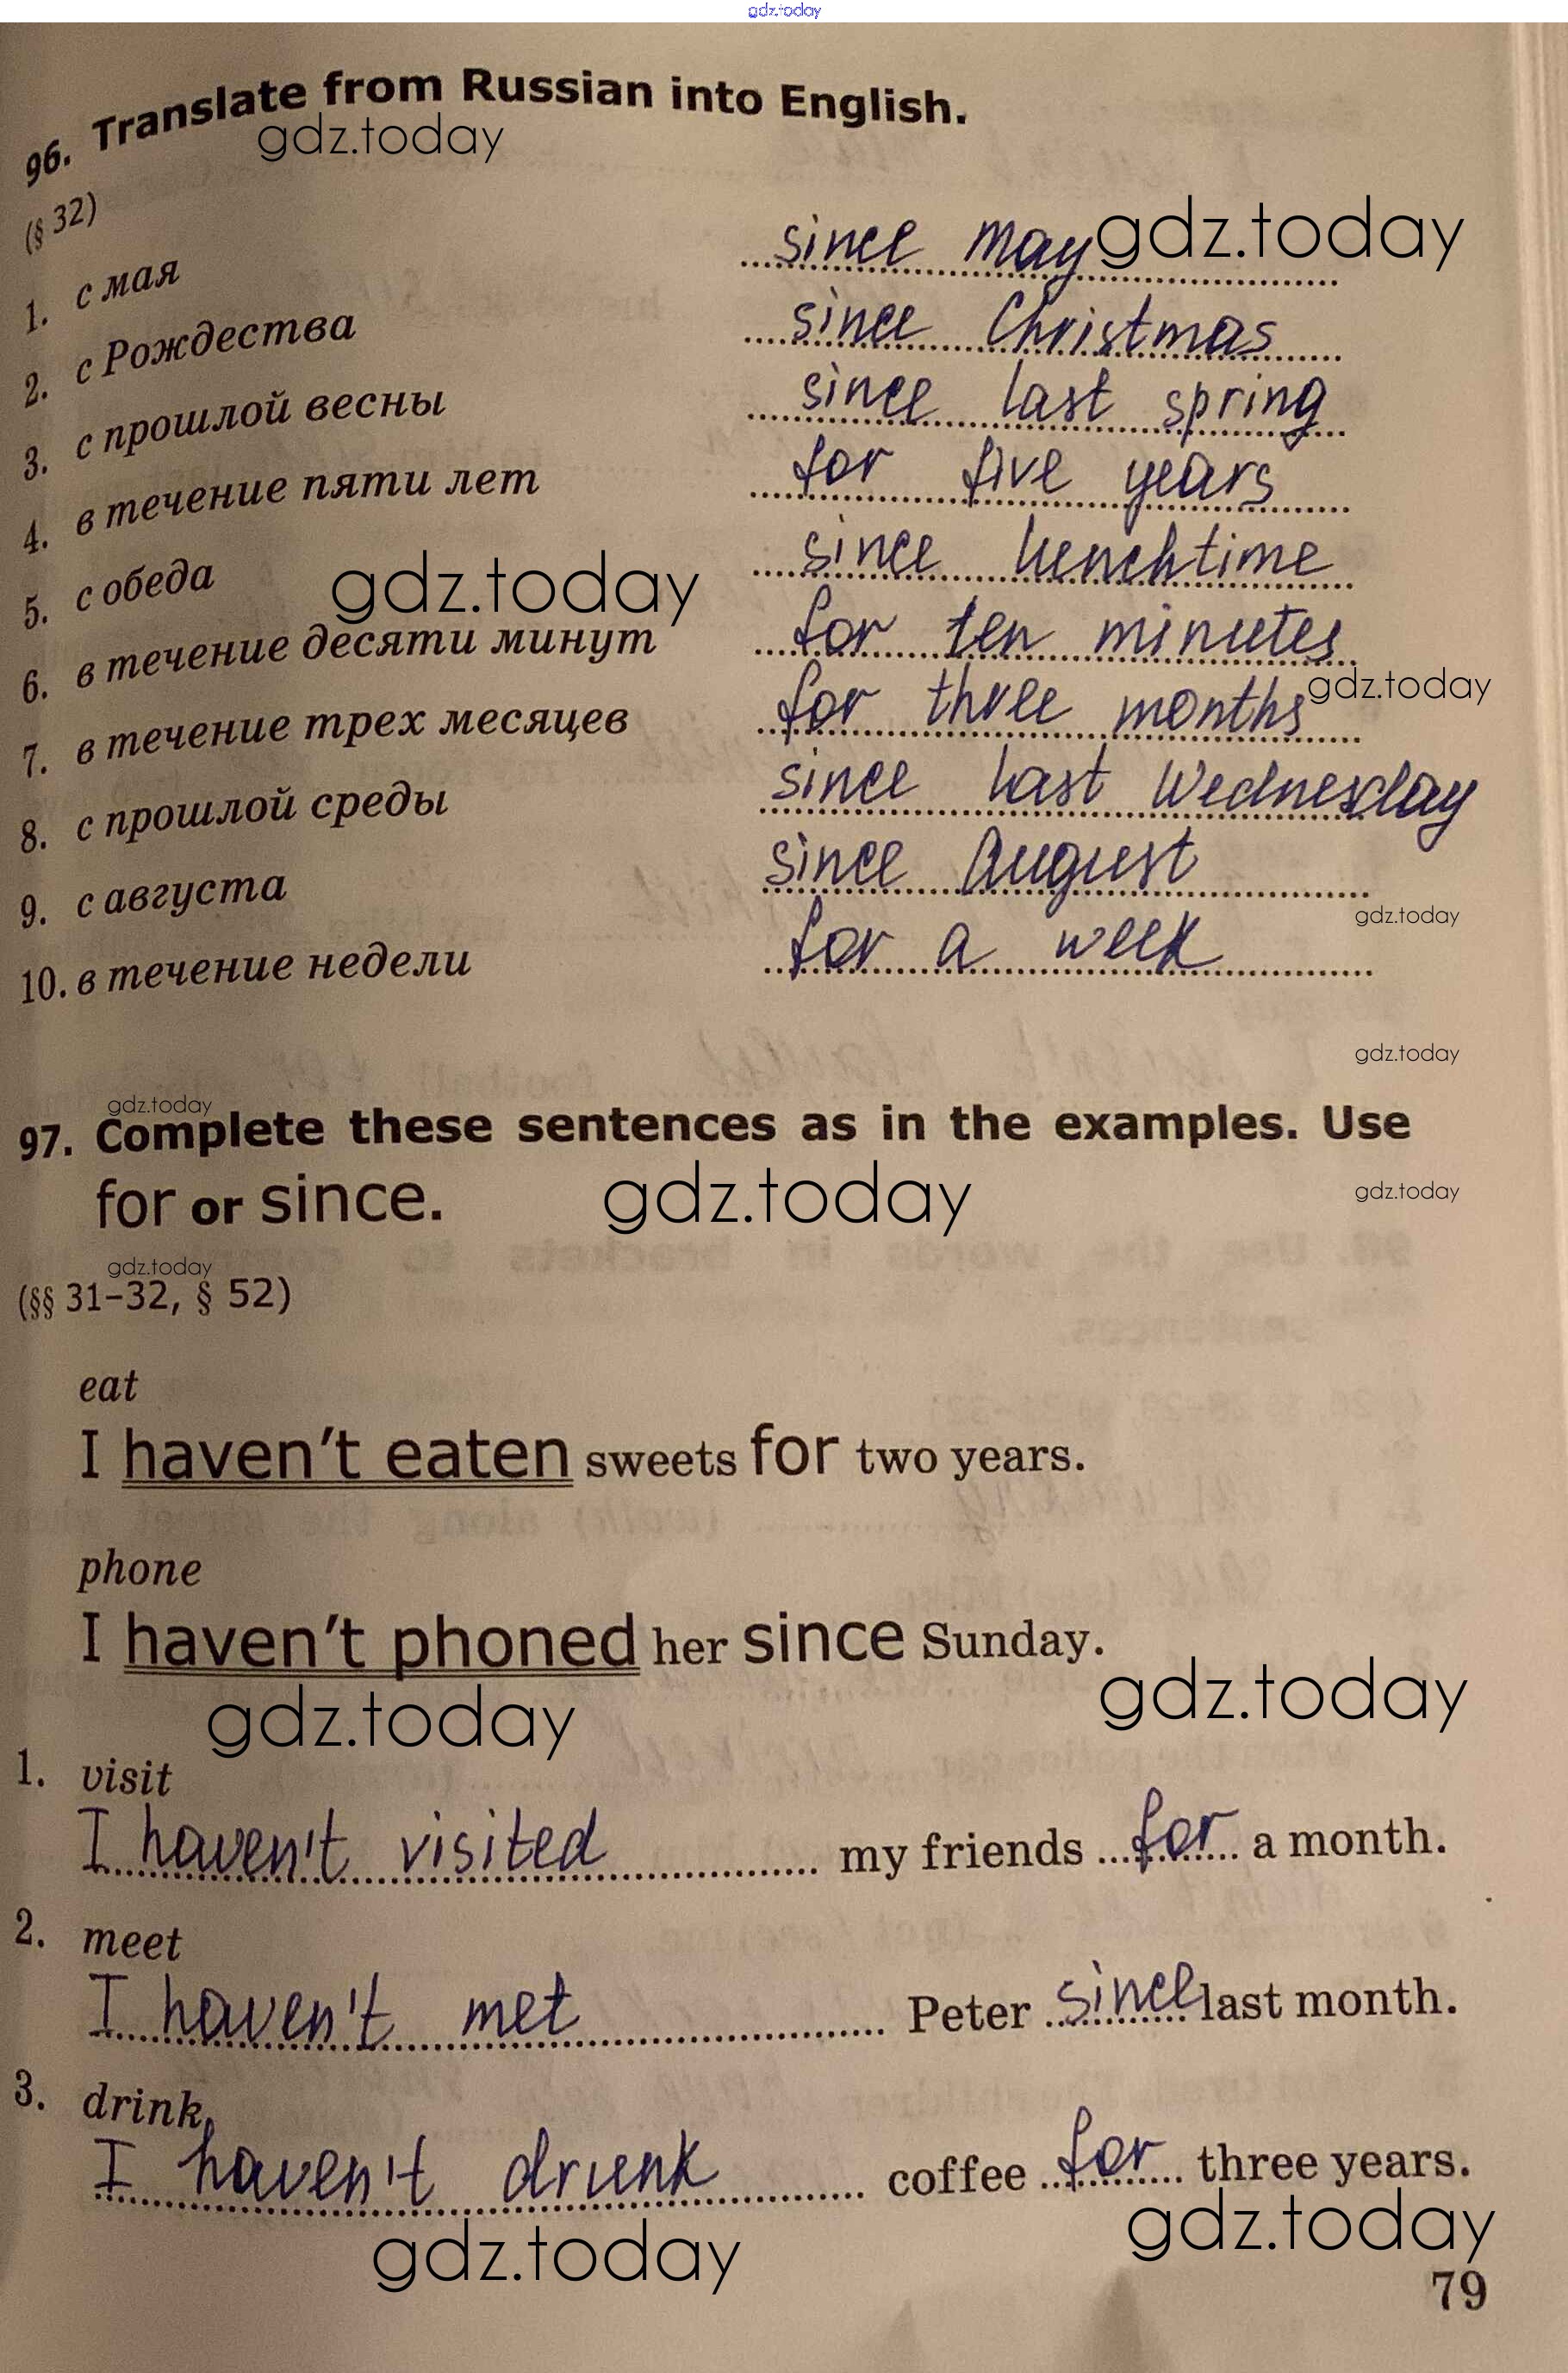 gdz.today
96. Translate from Russian into English.
gdz.today
(§ 32)
1. с мая since May gdz.today
2. с Рождества since Christmas
3. с прошлой весны since last spring
4. в течение пяти лет for five years
5. с обеда since lunchtime
gdz.today
6. в течение десяти минут for ten minutes
gdz.today
7. в течение трех месяцев for three months
8. с прошлой среды since last Wednesday
9. с августа since August
gdz.today
10. в течение недели for a week
gdz.today
gdz.today
97. Complete these sentences as in the examples. Use
for or since. gdz.today gdz.today
gdz.today
(§§ 31–32, § 52)
eat
I haven't eaten sweets for two years.
phone
I haven't phoned her since Sunday.
gdz.today gdz.today
1. visit
I haven't visited my friends for a month.
2. meet
I haven't met Peter since last month.
3. drink
I haven't drunk coffee for three years.
gdz.today gdz.today
79